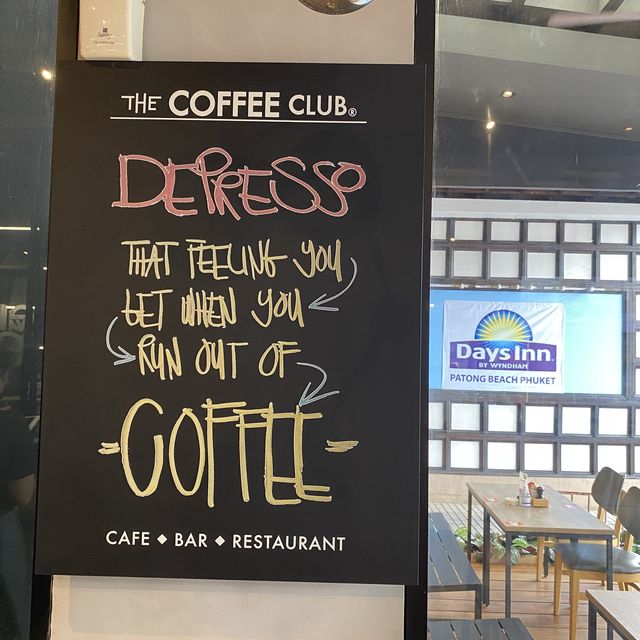 THE COFFEE CLUB®
DEPRESSO
THAT FEELING YOU
GET WHEN YOU
RUN OUT OF
-COFFEE-
CAFE ◆ BAR ◆ RESTAURANT
Days Inn
BY WYNDHAM
PATONG BEACH PHUKET